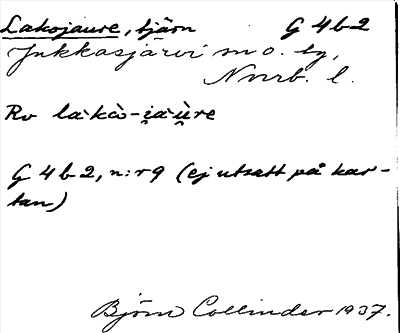 Lakojaure, tjärn G 4 b 2
Jukkasjärvi sn o. tg,
Norrb. l.
Rv la·kò-i̯àu̯re
G 4 b 2, n:r 9 (ej utsatt på kar-
tan)
Björn Collinder 1937.